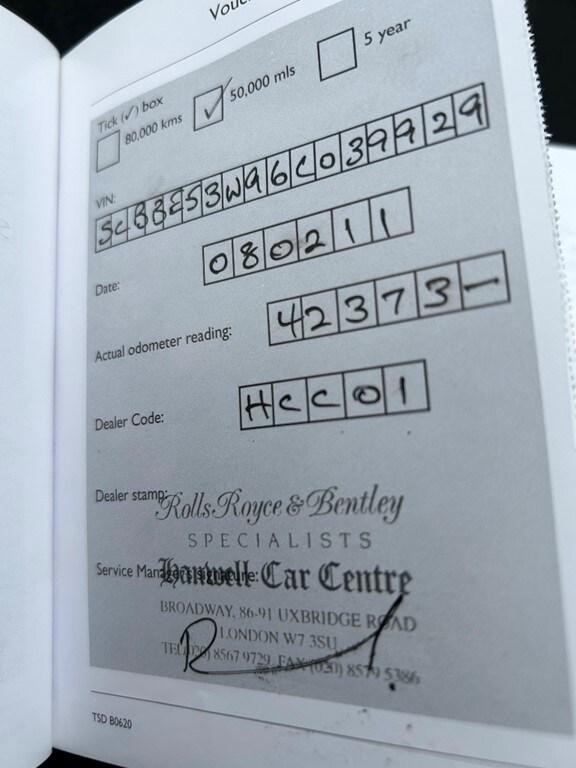 Vouc
Tick (✓) box
80,000 kms
✓ 50,000 mls
5 year
VIN: SCBBE53W96C039929
Date: 080211
Actual odometer reading: 42373–
Dealer Code: HCC01
Dealer stamp:
Rolls Royce & Bentley
SPECIALISTS
Service Manager's signature:
Hanwell Car Centre
BROADWAY, 86-91 UXBRIDGE ROAD
LONDON W7 3SU
TEL (020) 8567 9729 FAX (020) 8579 5386
TSD B0620